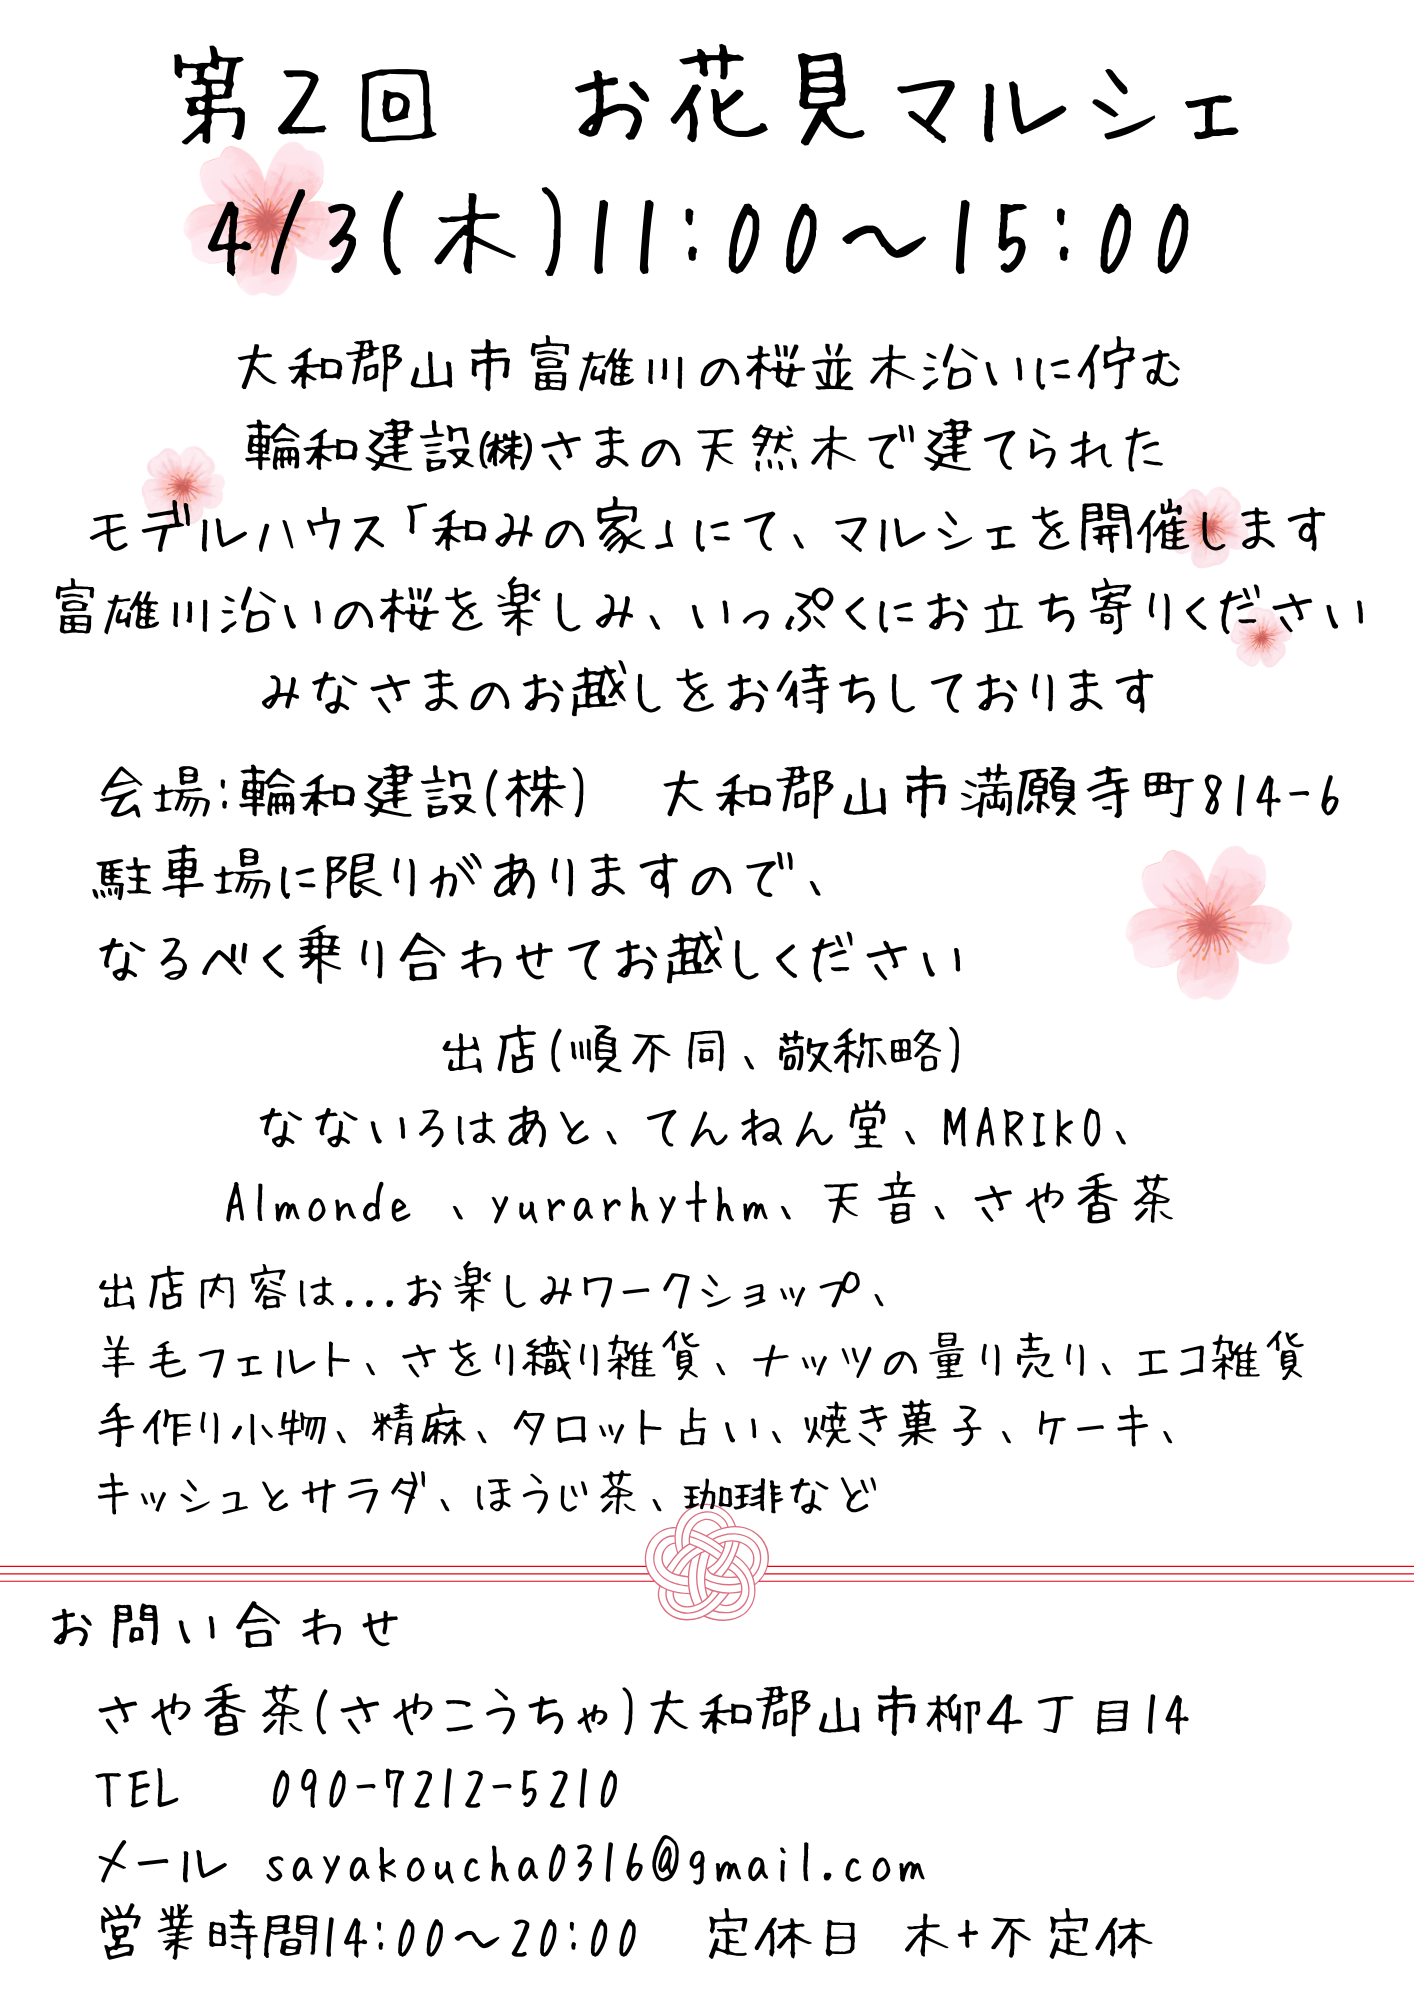 第2回　お花見マルシェ
4/3(木)11:00～15:00
大和郡山市富雄川の桜並木沿いに佇む
輪和建設㈱さまの天然木で建てられた
モデルハウス「和みの家」にて、マルシェを開催します
富雄川沿いの桜を楽しみ、いっぷくにお立ち寄りください
みなさまのお越しをお待ちしております
会場:輪和建設(株)　大和郡山市満願寺町814-6
駐車場に限りがありますので、
なるべく乗り合わせてお越しください
出店(順不同、敬称略)
なないろはあと、てんねん堂、MARIKO、
Almonde 、yurarhythm、天音、さや香茶
出店内容は...お楽しみワークショップ、
羊毛フェルト、さをり織り雑貨、ナッツの量り売り、エコ雑貨
手作り小物、精麻、タロット占い、焼き菓子、ケーキ、
キッシュとサラダ、ほうじ茶、珈琲など
お問い合わせ
さや香茶(さやこうちゃ)大和郡山市柳4丁目14
TEL　090-7212-5210
メール sayakoucha0316@gmail.com
営業時間14:00～20:00　定休日 木+不定休